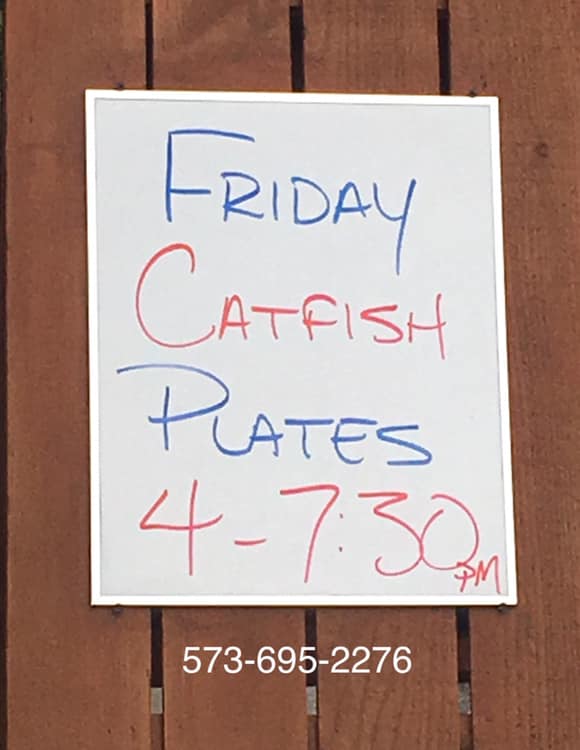 FRIDAY
CATFISH
PLATES
4-7:30 PM
573-695-2276